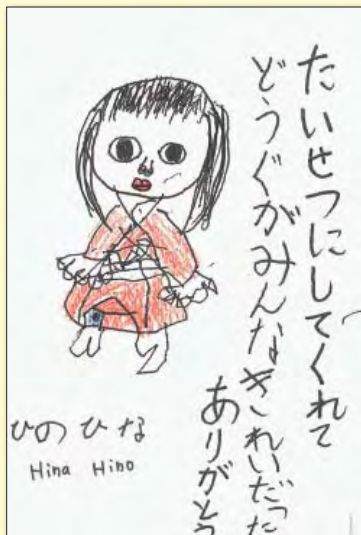 たいせつにしてくれて
どうぐがみんなきれいだった
ありがとう
ひのひな
Hina Hino